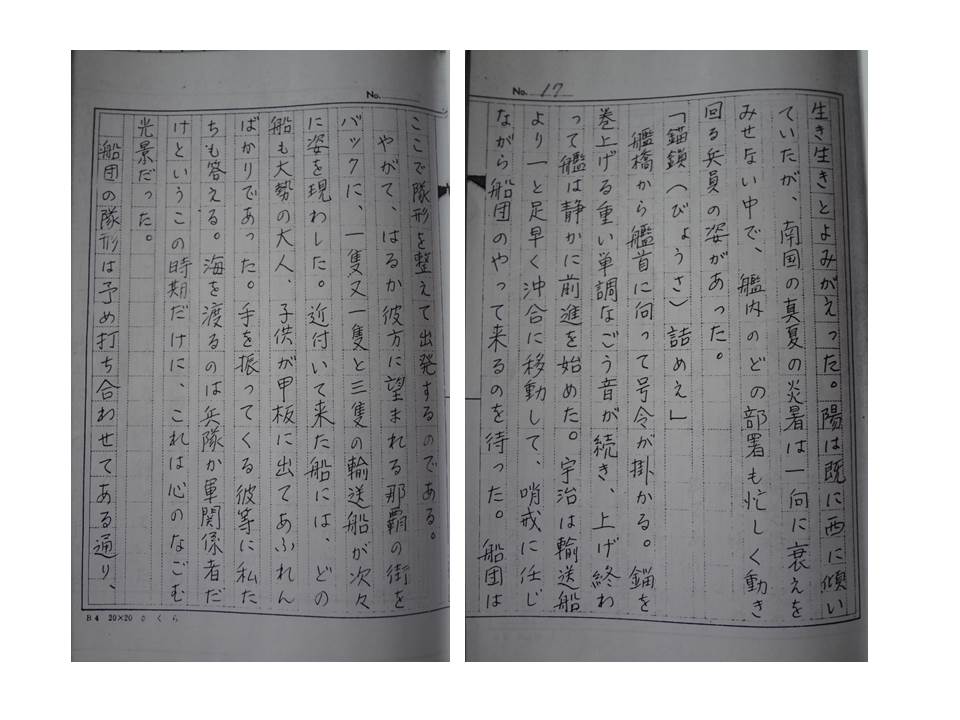 No. 17
生き生きとよみがえった。陽は既に西に傾い
ていたが、南国の真夏の炎暑は一向に衰えを
みせない中で、艦内のどの部署も忙しく動き
回る兵員の姿があった。
「錨鎖(びょうさ)詰めぇ」
艦橋から艦首に向って号令が掛かる。錨を
巻上げる重い単調なごう音が続き、上げ終わ
って艦は静かに前進を始めた。宇治は輸送船
より一と足早く沖合に移動して、哨戒に任じ
ながら船団のやって来るのを待った。船団は
No.
ここで隊形を整えて出発するのである。
やがて、はるか彼方に望まれる那覇の街を
バックに、一隻又一隻と三隻の輸送船が次々
に姿を現わした。近付いて来た船には、どの
船も大勢の大人、子供が甲板に出てあふれん
ばかりであった。手を振ってくる彼等に私た
ちも答える。海を渡るのは兵隊か軍関係者だ
けというこの時期だけに、これは心のなごむ
光景だった。
船団の隊形は予め打ち合わせてある通り、
B4 20×20 さくら